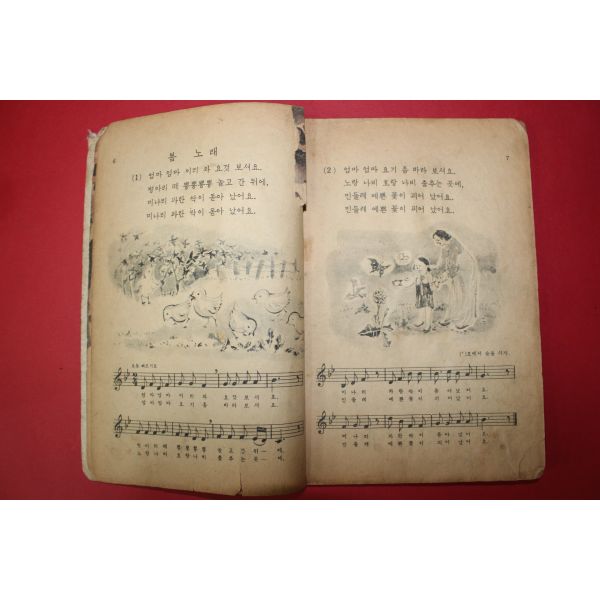 6
봄 노래
(1) 엄마 엄마 이리 와 요것 보셔요.
병아리 떼 뿅뿅뿅뿅 놀고 간 뒤에,
미나리 파란 싹이 돋아 났어요.
미나리 파란 싹이 돋아 났어요.
조금 빠르기로
엄마엄마 이리와 요것보셔요.
엄마엄마 요기좀 바라보셔요.
병아리떼 뿅뿅뿅뿅 놀고간뒤—에,
노랑나비 호랑나비 춤추는곳—에,
7
(2) 엄마 엄마 요기 좀 바라 보셔요.
노랑 나비 호랑 나비 춤추는 곳에,
민들레 예쁜 꽃이 피어 났어요.
민들레 예쁜 꽃이 피어 났어요.
(’)표에서 숨을 쉬자.
미나리 파란싹이 돋아났어요.
민들레 예쁜꽃이 피어났어요.
미나리 파란싹이 돋아났어요.
민들레 예쁜꽃이 피어났어요.